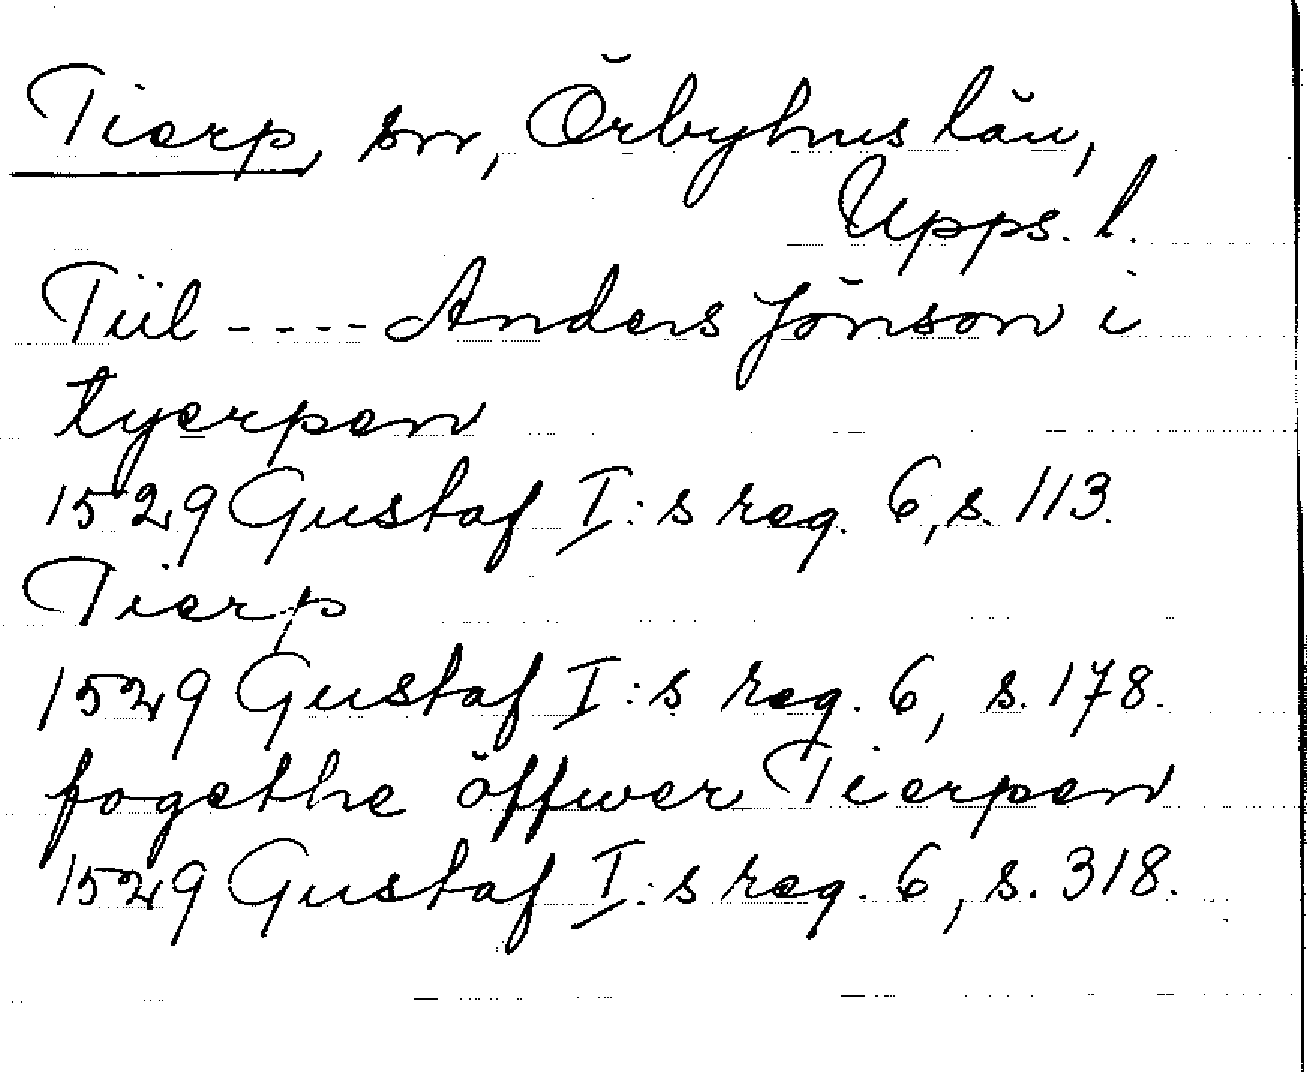 Tierp, sn, Örbyhus län,
Upps. l.
Tiil ---- Anders Jönson i
tyerpen
1529 Gustaf I:s reg. 6, s. 113.
Tierp
1529 Gustaf I:s reg. 6, s. 178.
fogethe öffwer Tierpen
1529 Gustaf I:s reg. 6, s. 318.